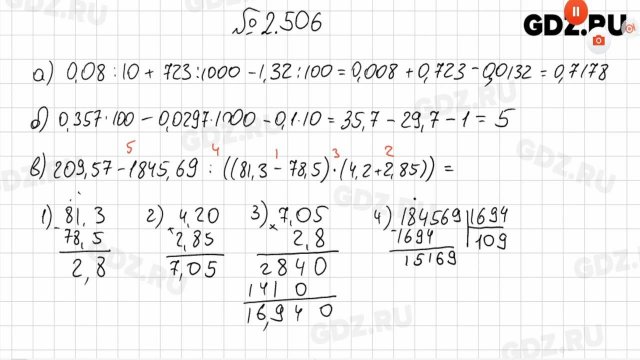 № 2.506
GDZ.RU
а) 0,08 : 10 + 723 : 1000 - 1,32 : 100 = 0,008 + 0,723 - 0,0132 = 0,7178
б) 0,357 · 100 - 0,0297 · 1000 - 0,1 · 10 = 35,7 - 29,7 - 1 = 5
5 4 1 3 2
в) 209,57 - 1845,69 : ((81,3 - 78,5) · (4,2 + 2,85)) =
1) 81,3 2) 4,20 3) 7,05 4) 184569 | 1694
- 78,5 + 2,85 × 2,8 - 1694 109
2,8 7,05 2840 15169
1410
16,940